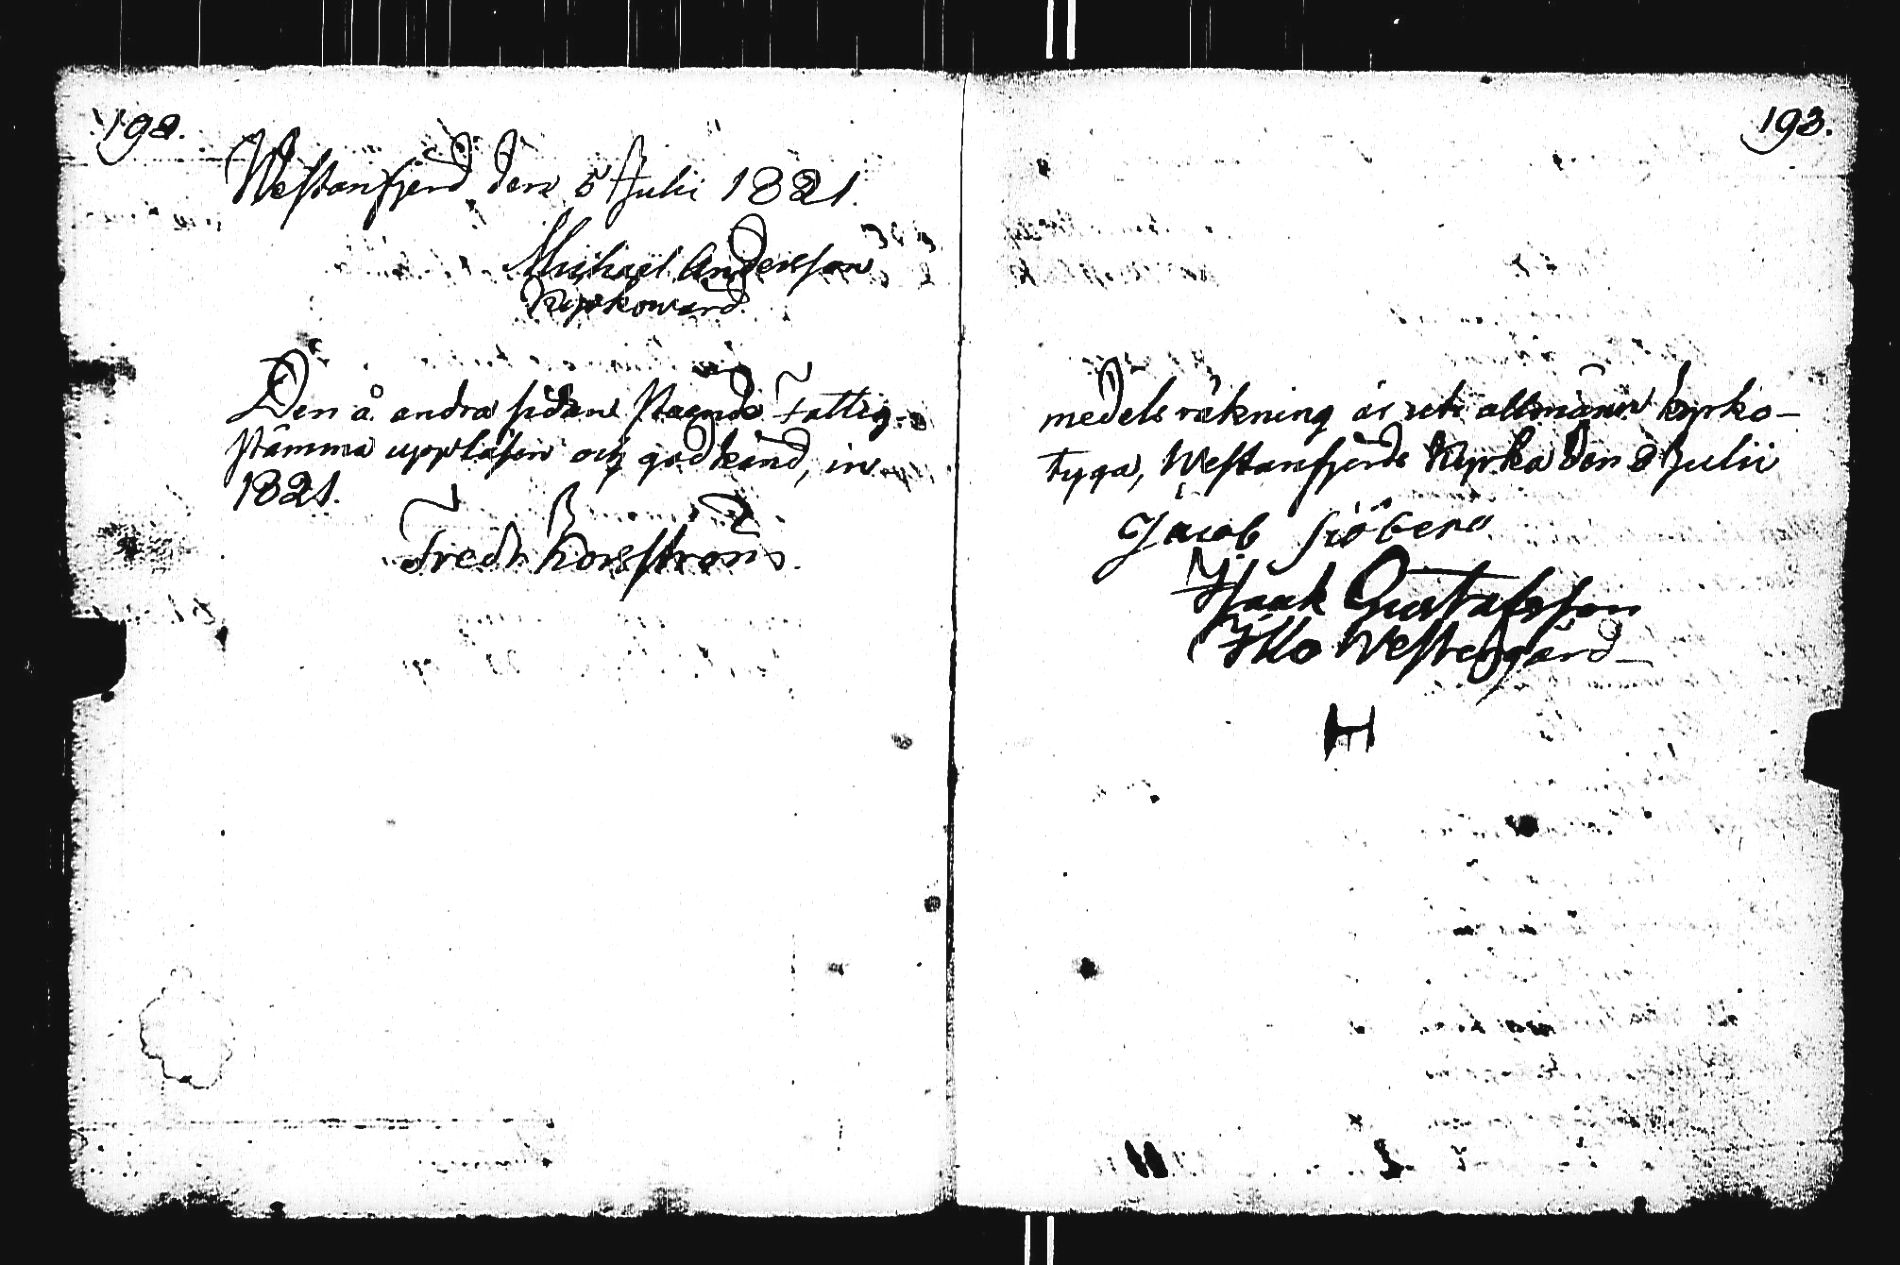 192.
Westanfjerd den 5 Julii 1821.
Michaël Andersson
Kyrkowärd
Den å andra sidan staende Fattig-
stämma uppläsen och godkänd, in
1821.
Fredr. Forsström
193.
medels räkning är uti allmänn kyrko-
tyga, Westanfjerds Kyrka den 8 Julii
Jacob Siöberg
Isaak Gustafsson
Westergård
H